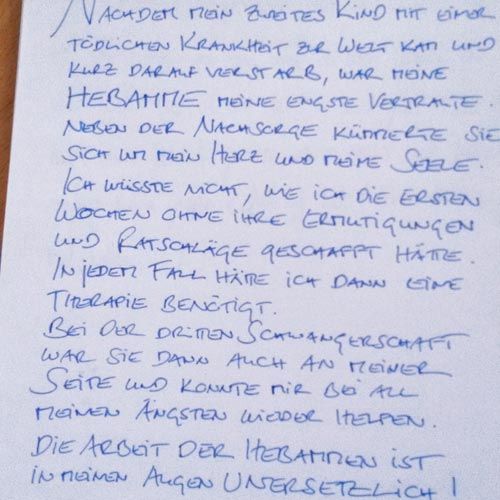 NACHDEM MEIN ZWEITES KIND MIT EINER
TÖDLICHEN KRANKHEIT ZUR WELT KAM UND
KURZ DARAUF VERSTARB, WAR MEINE
HEBAMME MEINE ENGSTE VERTRAUTE.
NEBEN DER NACHSORGE KÜMMERTE SIE
SICH UM MEIN HERZ UND MEINE SEELE.
ICH WÜSSTE NICHT, WIE ICH DIE ERSTEN
WOCHEN OHNE IHRE ERMUTIGUNGEN
UND RATSCHLÄGE GESCHAFFT HÄTTE.
IN JEDEM FALL HÄTTE ICH DANN EINE
THERAPIE BENÖTIGT.
BEI DER DRITTEN SCHWANGERSCHAFT
WAR SIE DANN AUCH AN MEINER
SEITE UND KONNTE MIR BEI ALL
MEINEN ÄNGSTEN WIEDER HELFEN.
DIE ARBEIT DER HEBAMMEN IST
IN MEINEN AUGEN UNERSETZLICH!